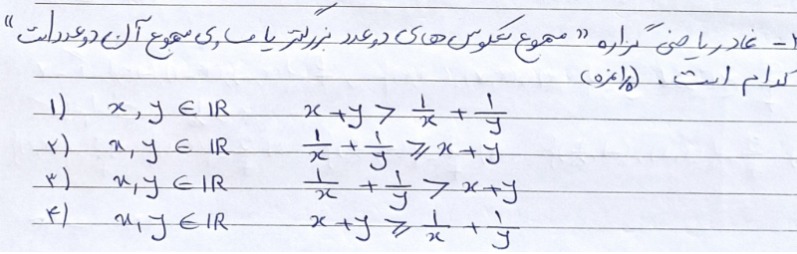 ۱- نماد ریاضی گزاره "مجموع معکوس های دو عدد بزرگتر یا مساوی مجموع آن دو عدد است"
کدام است. (نمره)
۱) x, y ∈ IR x + y > 1/x + 1/y
۲) x, y ∈ IR 1/x + 1/y ⩾ x + y
۳) x, y ∈ IR 1/x + 1/y > x + y
۴) x, y ∈ IR x + y ⩾ 1/x + 1/y